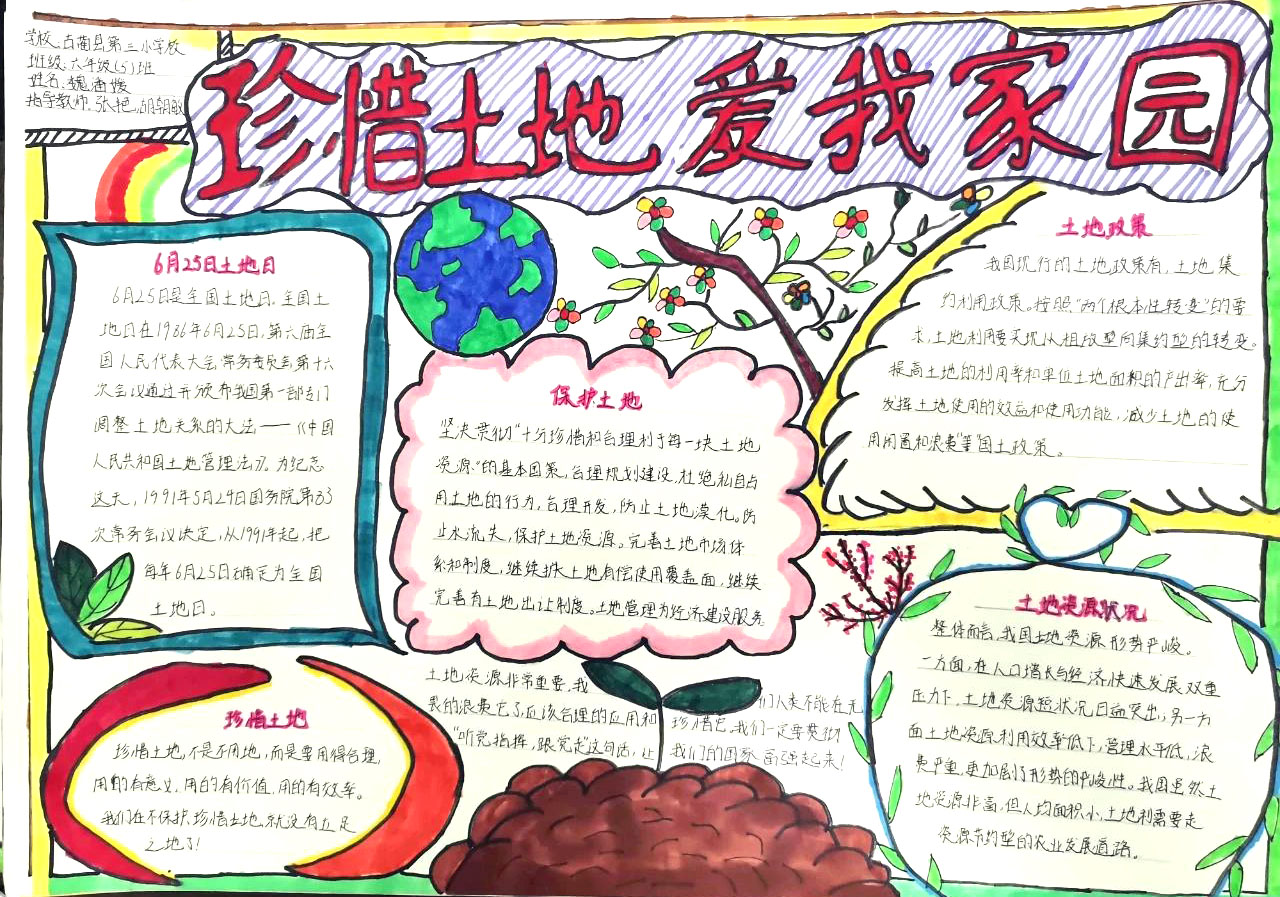 学校:古蔺县第三小学校
班级:六年级(5)班
姓名:魏
指导教师:张艳,胡朝敏
珍惜土地 爱我家园
6月25日土地日
6月25日是全国土地日。全国土
地日在1986年6月25日,第六届全
国人民代表大会常务委员会第十六
次会议通过并颁布我国第一部专门
调整土地关系的大法——《中国
人民共和国土地管理法》。为纪念
这天,1991年5月24日国务院第83
次常务会议决定,从1991年起,把
每年6月25日确定为全国
土地日。
保护土地
坚决贯彻“十分珍惜和合理利于每一块土地
资源”的基本国策,合理规划建设,杜绝私自占
用土地的行为,合理开发,防止土地漠化。防
止水流失,保护土地资源。完善土地市场体
系和制度,继续扩大土地有偿使用覆盖面,继续
完善有土地出让制度。土地管理为经济建设服务
土地政策
我国现行的土地政策有,土地集
约利用政策。按照“两个根本性转变”的要
求,土地利用要实现从粗放型向集约型的转变。
提高土地的利用率和单位土地面积的产出率,充分
发挥土地使用的效益和使用功能,减少土地的使
用闲置和浪费“等”国土政策。
珍惜土地
珍惜土地,不是不用地,而是要用得合理,
用的有意义,用的有价值,用的有效率。
我们在不保护,珍惜土地,就没有立足
之地了!
土地资源非常重要,我们人类不能在无
畏的浪费它了,应该合理的应用和珍惜它,我们一定要贯彻
“听党指挥,跟党走”这句话,让我们的国家富强起来!
土地资源状况
整体而言,我国土地资源形势严峻。
一方面,在人口增长与经济快速发展双重
压力下,土地资源短状况日益突出;另一方
面土地资源利用效率低下,管理水平低,浪
费严重,更加剧了形势的严峻性。我国虽然土
地资源丰富,但人均面积小,土地利需要走
资源节约型的农业发展道路。